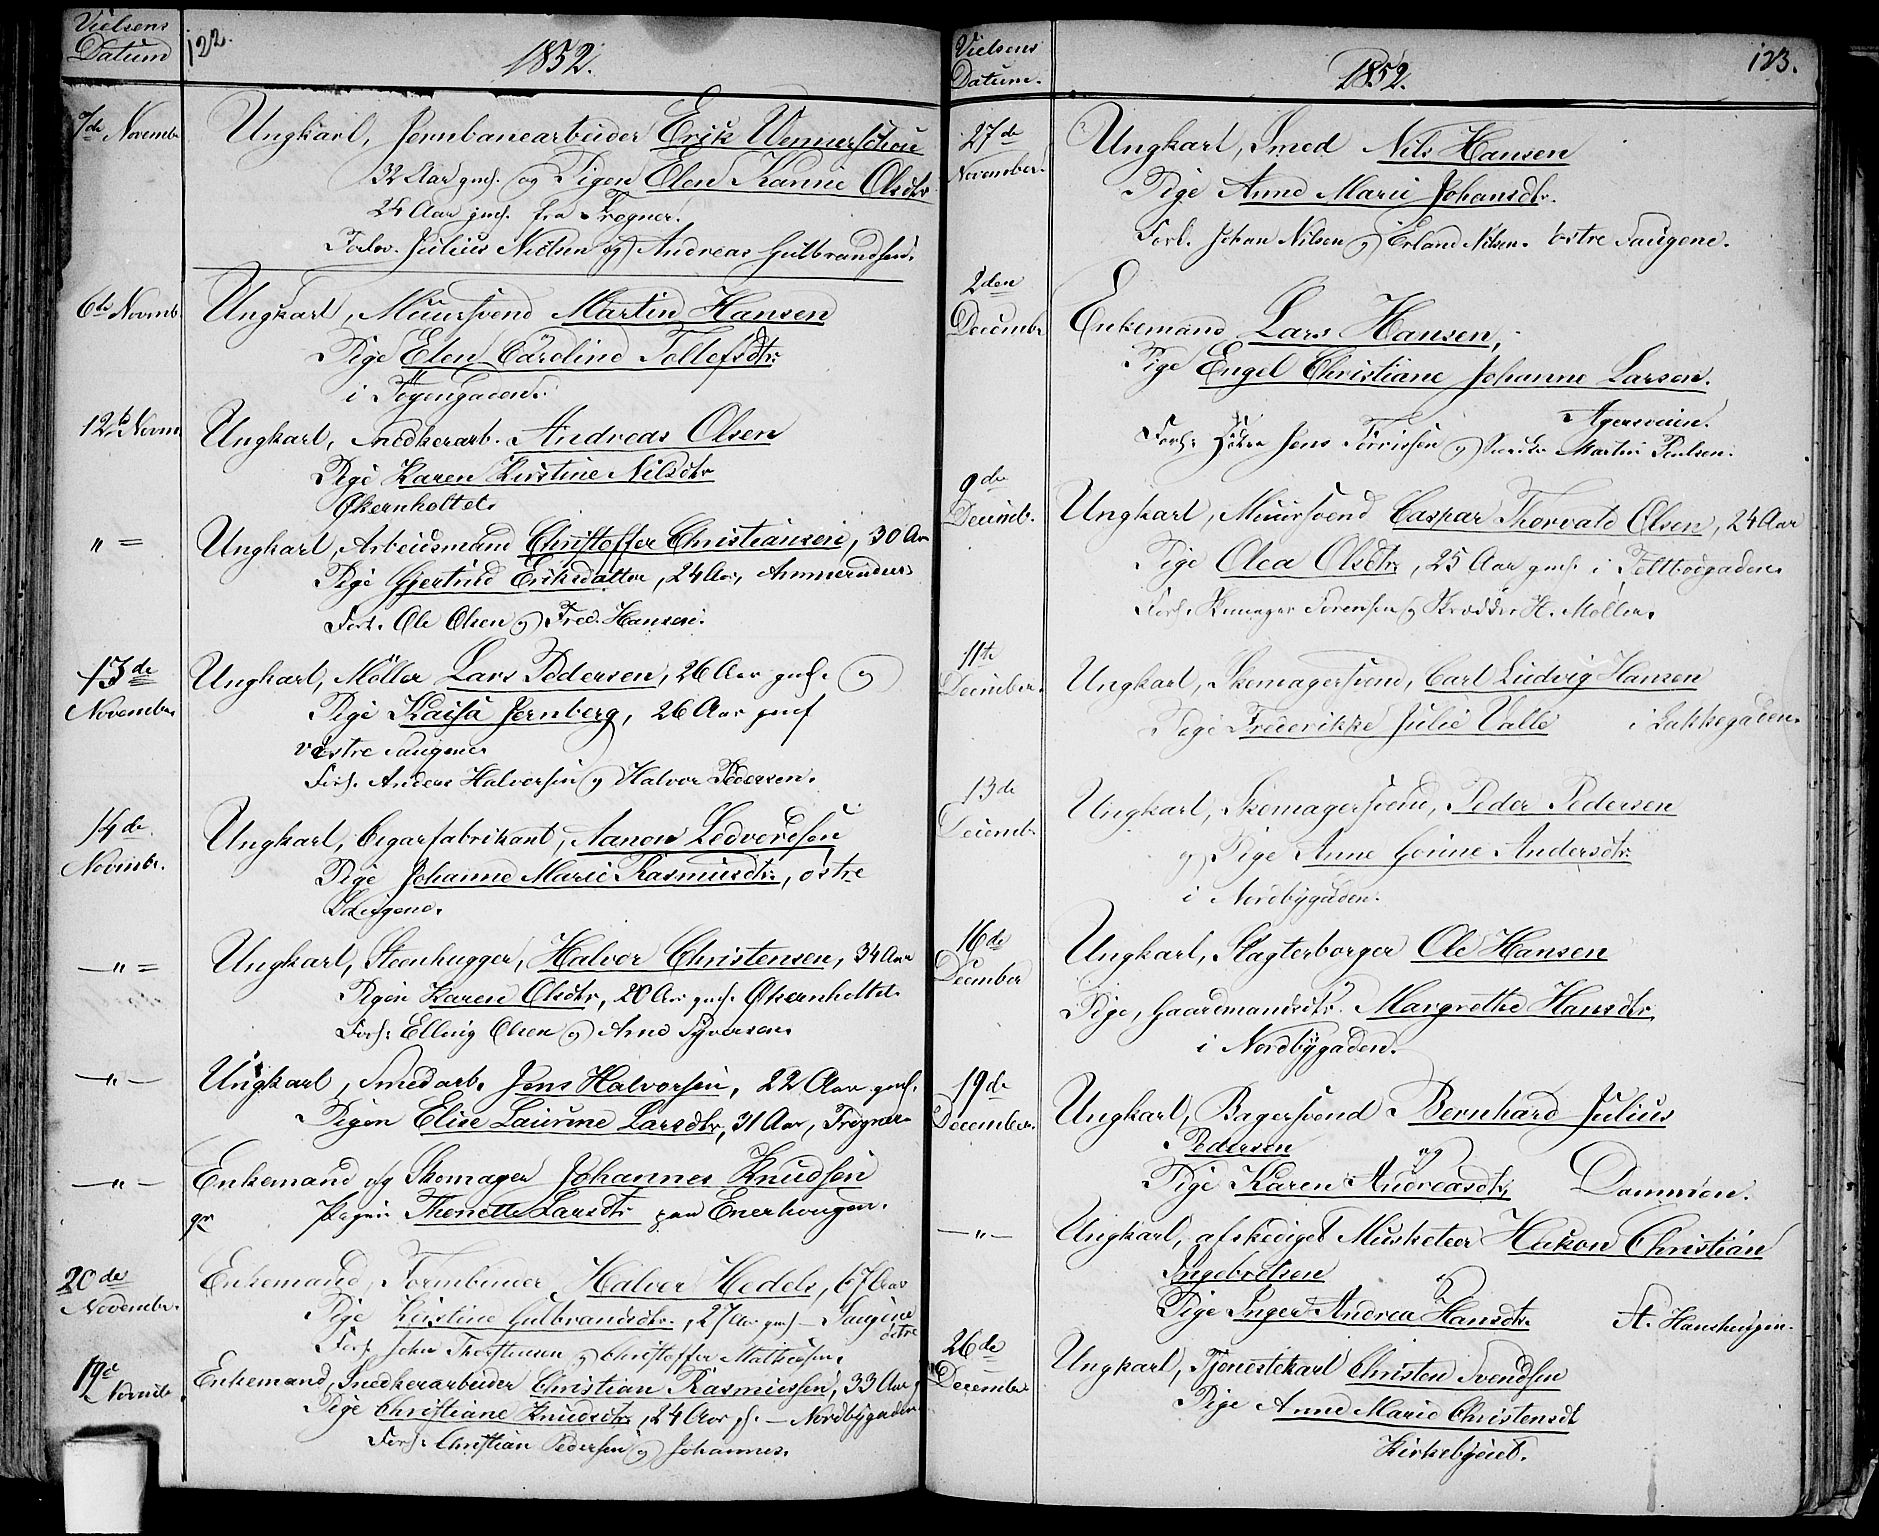 Vielsens
Datum
122.
1852.
7de Novembr
Ungkarl, Jernbanearbeider Erik
32 Aar gml. og Pigen Elen Karine Olsdtr
24 Aar gml. fra Frogner.
Forlov. Julius Nielsen og Andreas Gulbrandsen.
6te Novmb.
Ungkarl, Muursvend Martin Hansen
Pige Elen Caroline Tollefsdtr.
i
12te Novm.
Ungkarl, Snedkerarb. Andreas Olsen
Pige Karen Kirstine Nilsdtr
Økernholtet.
" =
Ungkarl, Arbeidsmand Christoffer Christiansen, 30 Aar
Pige Gjertrud Eriksdatter, 24 Aar, Ammeruder
Forl. Ole Olsen og Fred. Hansen.
13de
November
Ungkarl, Møller Lars Pedersen, 26 Aar gml. og
Pige Kaisa Jernberg, 26 Aar gml
vestre Saugene
Forl. Anders Halvorsen og Halvor Pedersen.
14de
Novembr.
Ungkarl, Cigarfabrikant, Aanon Ledvordsen
Pige Johanne Marie Rasmusdtr., østre
Saugene.
— " =
Ungkarl, Steenhugger, Halvor Christensen, 34 Aar
Pigen Karen Olsdtr, 20 Aar gml. Økernholtet
Forl: Elling Olsen og Arne Syversen
— " —
Ungkarl, Smedarb. Jens Halvorsen, 22 Aar gml.
Pigen Elise Laurine Larsdtr, 31 Aar, Frogner
— " —
Enkemand og Skomager Johannes Knudsen
Pigen Thonette Larsdtr paa Enerhougen.
20de
November.
Enkemand, Halvor Hedels, 67 Aar
Pige Kirstine Gulbrandsdtr., 27 Aar gml — Saugene
østre
Forl. John og Christoffer Mathiesen.
19de
Novembr
Enkemand, Snedkerarbeider Christian Rasmussen, 33 Aar,
Pige Christiane Knudsdtr, 24 Aar gl. — Nordbygaden
Forl. Christian Pedersen og Johannes.
Vielsens
Datum.
1852.
123.
27de
November.
Ungkarl, Smed Nils Hansen
Pige Anne Marie Johansdtr.
Forl. Johan Nilsen og Erland Nilsen. østre Saugene.
2den
Decembr
Enkemand Lars Hansen,
Pige Engel Christiane Johanne Larsen.
Agersveien.
Forl: Jens og Martin Poulsen.
9de
Decemb.
Ungkarl, Muursvend Caspar Thorvald Olsen, 24 Aar
Pige Olea Olsdtr, 25 Aar gml. i Feltbodgaden
Forl. Skomager Sørensen og Skrædder H. Møller.
11te
December.
Ungkarl, Skomagersvend, Carl Ludvig Hansen
Pige Frederikke Julie Valle i Bakkegaden.
13de
Decembr.
Ungkarl, Skomagersvend, Peder Pedersen
og Pige Anne Gurine Andersdtr.
i Nordbygaden.
16de
December
Ungkarl, Slagterborger Ole Hansen
Pige, Gaardmandsdtr. Margrethe Hansdtr
i Nordbygaden.
19de
December.
Ungkarl, Bagersvend Bernhard Julius
Pedersen
og
Pige Karen Andreasdtr, Dammen.
— " —
Ungkarl, afskediget Musketeer Hakon Christian
Ingebretsen
og
Pige Inger Andrea Hansdtr. St. Hanshaugen.
26de
December
Ungkarl, Tjenestekarl Christen Svendsen
Pige Anne Marie Christensdt
Kirkebyeiet.